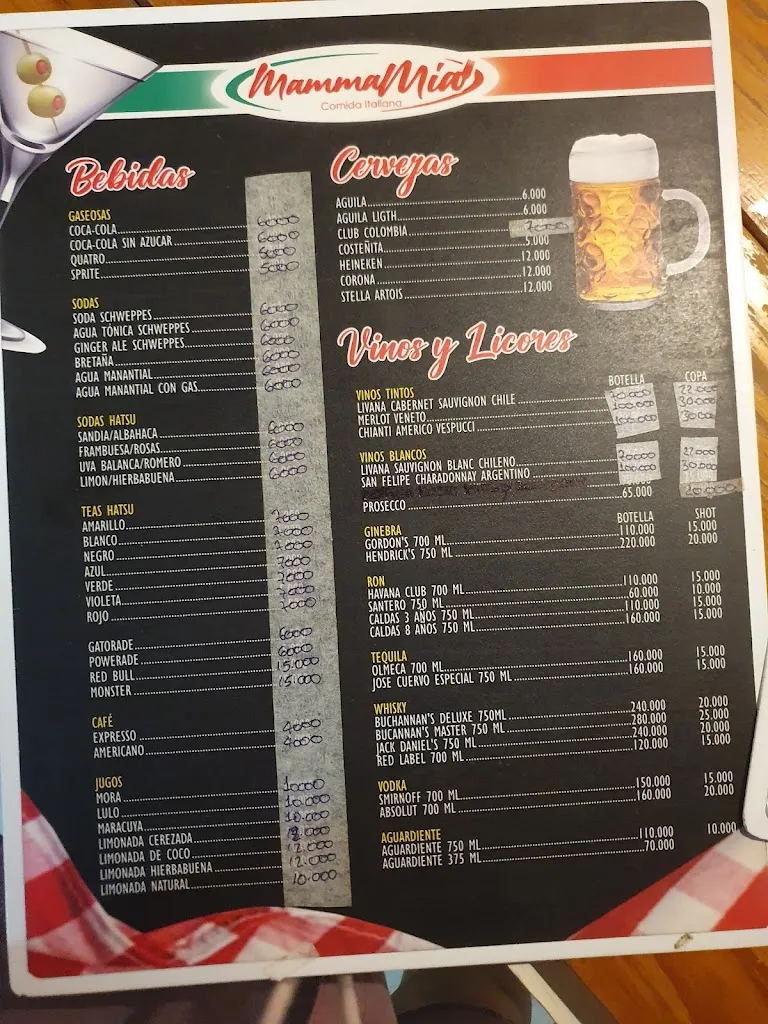 MammaMia!
Comida Italiana
Bebidas
GASEOSAS
COCA-COLA 6000
COCA-COLA SIN AZUCAR 6000
QUATRO 5000
SPRITE 5000
SODAS
SODA SCHWEPPES 6000
AGUA TÓNICA SCHWEPPES 6000
GINGER ALE SCHWEPPES 6000
BRETAÑA 6000
AGUA MANANTIAL 6000
AGUA MANANTIAL CON GAS 6000
SODAS HATSU
SANDIA/ALBAHACA 6000
FRAMBUESA/ROSAS 6000
UVA BALANCA/ROMERO 6000
LIMON/HIERBABUENA 6000
TEAS HATSU
AMARILLO 7000
BLANCO 7000
NEGRO 7000
AZUL 7000
VERDE 7000
VIOLETA 7000
ROJO 7000
GATORADE 6000
POWERADE 6000
RED BULL 15.000
MONSTER 15.000
CAFÉ
EXPRESSO 4000
AMERICANO 4000
JUGOS
MORA
LULO 10.000
MARACUYA 10.000
LIMONADA CEREZADA
LIMONADA DE COCO 12.000
LIMONADA HIERBABUENA 12.000
LIMONADA NATURAL 10.000
Cervezas
AGUILA 6.000
AGUILA LIGTH 6.000
CLUB COLOMBIA 7000
COSTEÑITA 5.000
HEINEKEN 12.000
CORONA 12.000
STELLA ARTOIS 12.000
Vinos y Licores
VINOS TINTOS BOTELLA COPA
LIVANA CABERNET SAUVIGNON CHILE
MERLOT VENETO 100.000 30.000
CHIANTI AMERICO VESPUCCI 100.000
VINOS BLANCOS
LIVANA SAUVIGNON BLANC CHILENO
SAN FELIPE CHARADONNAY ARGENTINO 100.000 30.000
PROSECCO 65.000
GINEBRA BOTELLA SHOT
GORDON'S 700 ML 110.000 15.000
HENDRICK'S 750 ML 220.000 20.000
RON
HAVANA CLUB 700 ML 110.000 15.000
SANTERO 750 ML 60.000 10.000
CALDAS 3 AÑOS 750 ML 110.000 15.000
CALDAS 8 AÑOS 750 ML 160.000 15.000
TEQUILA
OLMECA 700 ML 160.000 15.000
JOSE CUERVO ESPECIAL 750 ML 160.000 15.000
WHISKY
BUCHANNAN'S DELUXE 750ML 240.000 20.000
BUCANNAN'S MASTER 750 ML 280.000 25.000
JACK DANIEL'S 750 ML 240.000 20.000
RED LABEL 700 ML 120.000 15.000
VODKA
SMIRNOFF 700 ML 150.000 15.000
ABSOLUT 700 ML 160.000 20.000
AGUARDIENTE
AGUARDIENTE 750 ML 110.000 10.000
AGUARDIENTE 375 ML 70.000